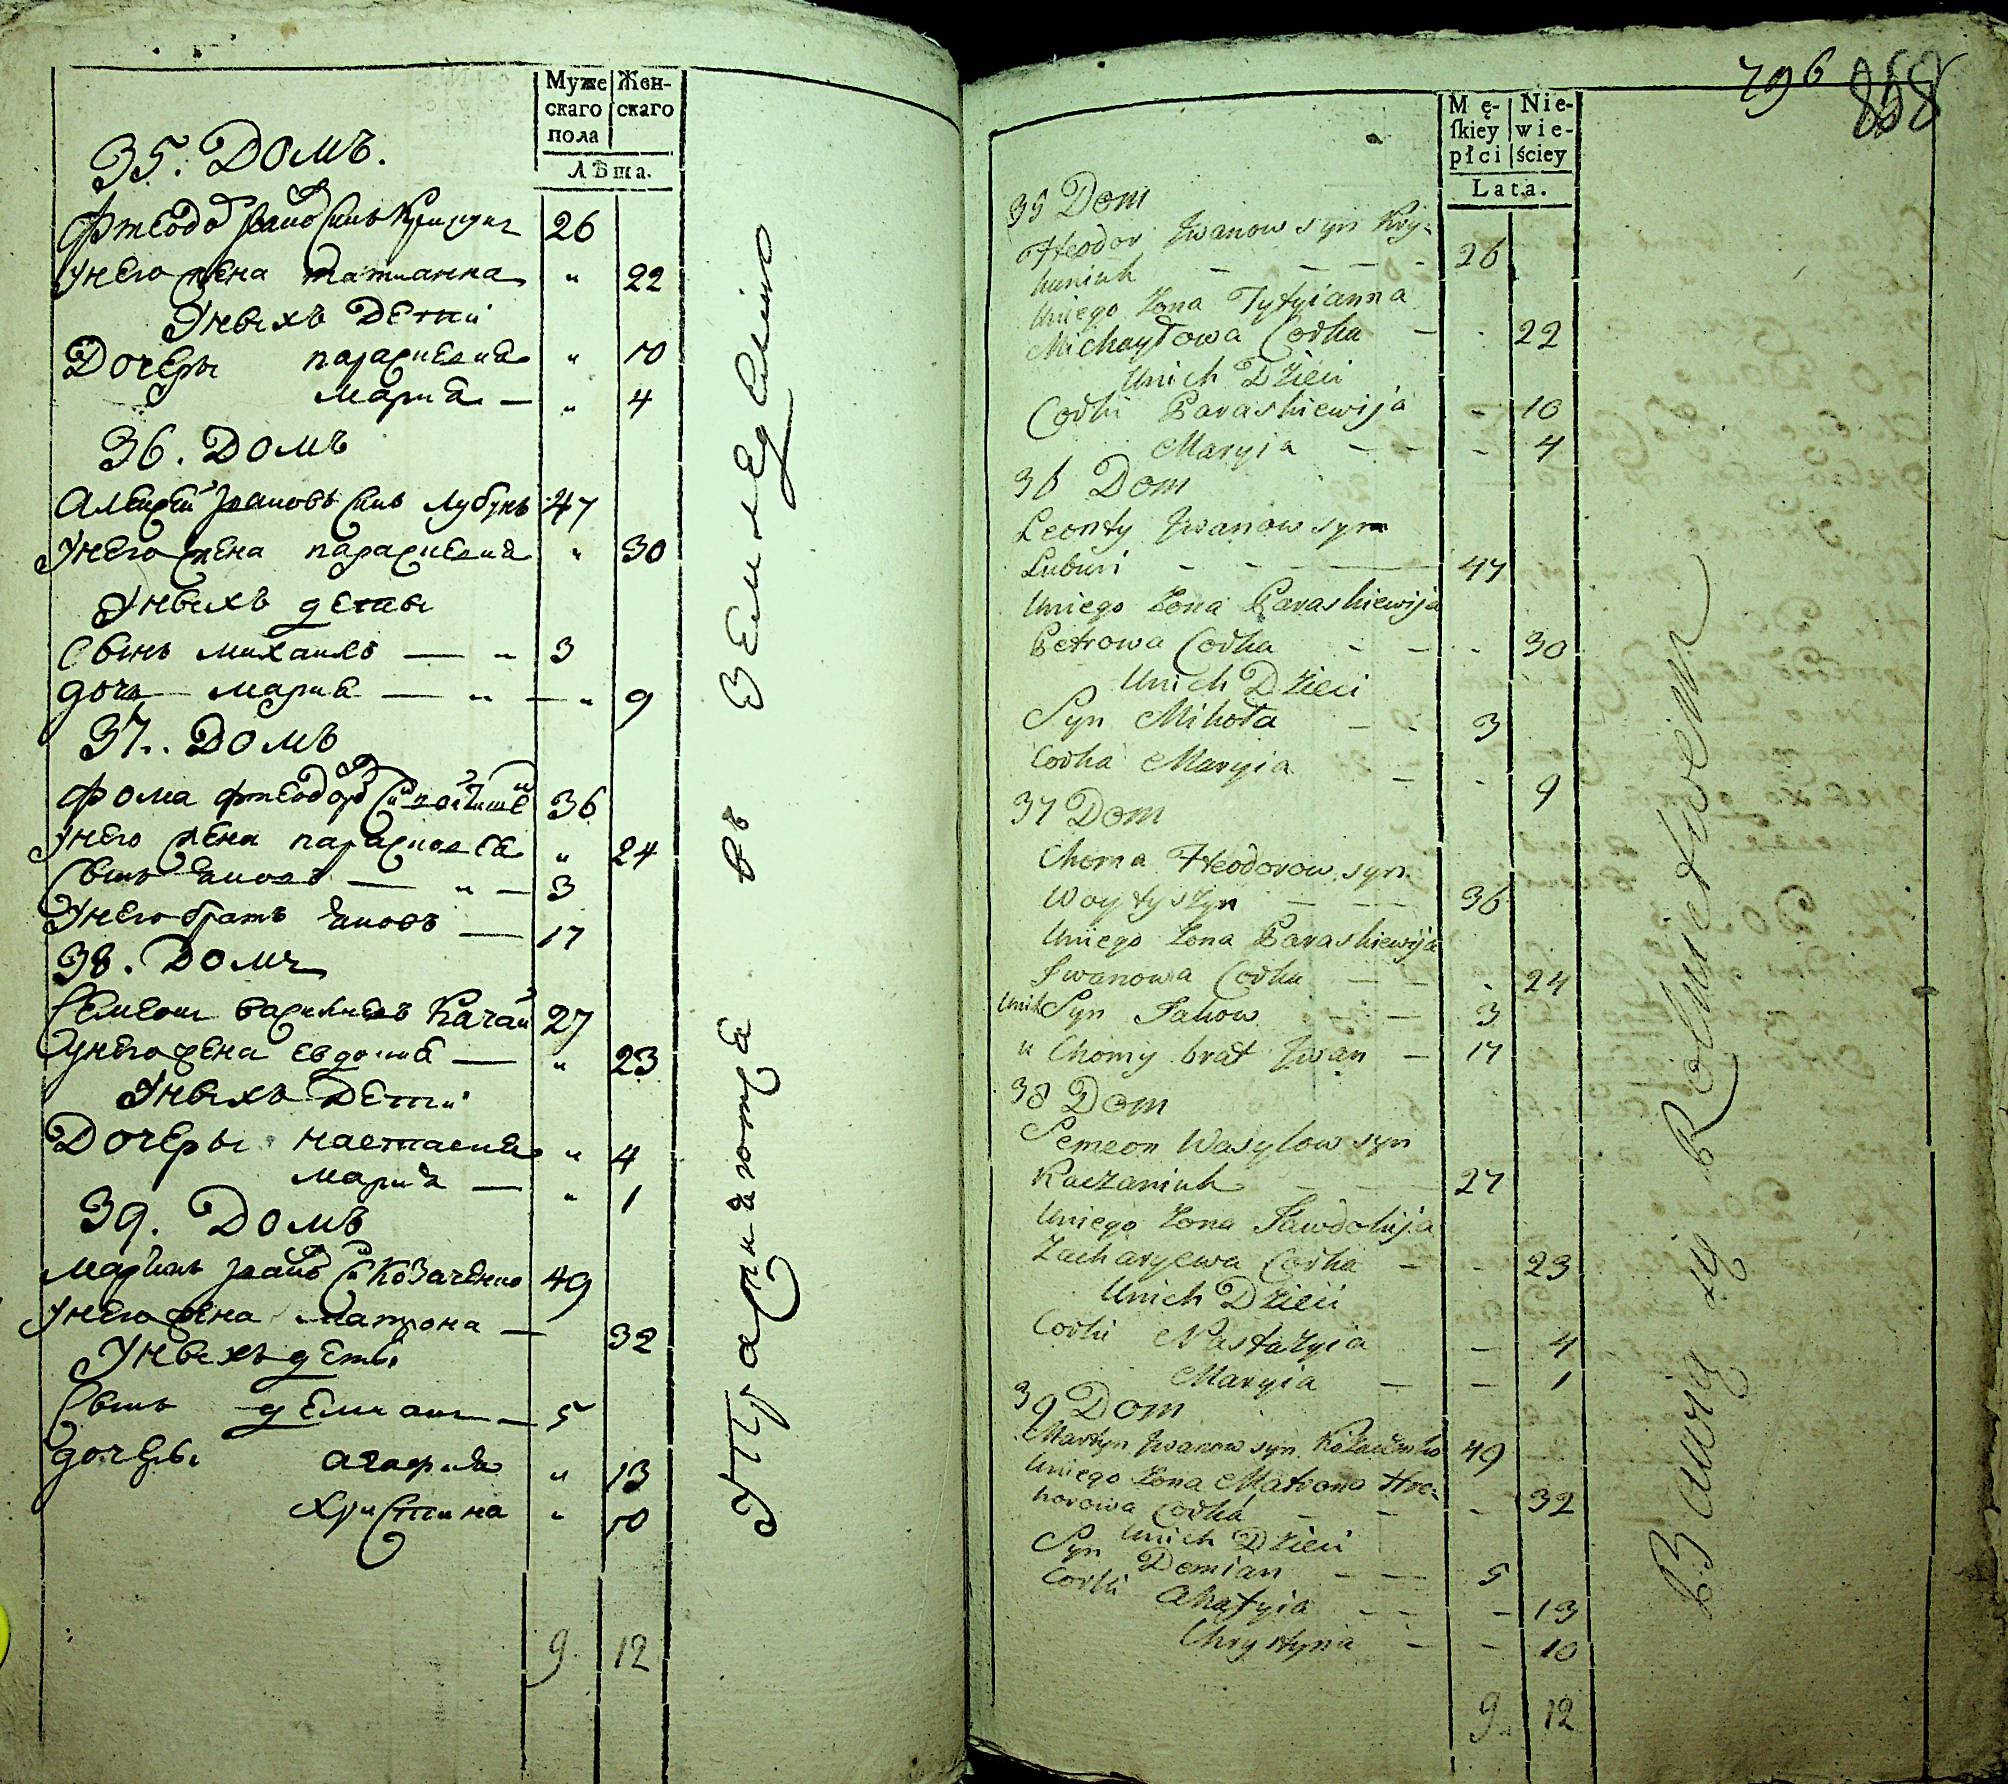 Муже Жен-
скаго скаго
пола
Лѣта.
35. Домъ.
Фтеодо Ивано Сынъ 26
Унего жена татианна „ 22
Унвихъ Детни
Дочеры параскевиа „ 10
Мариа — „ 4
36. Домъ
Алексей Ивановъ Сынъ Лубунъ 47
Унего жена параскевиа „ 30
Унвихъ дети
Свинъ михаилъ — „ 3
дочь — мариа — „ — „ 9
37. Домъ
Фома Фтеодоро 36
Унего жена параскевеа „ 24
Свинъ Яковъ — „ — 3
Унего братъ — 17
38. Домъ
Семеонъ василиевъ Качан 27
Унего жена евдокиа — „ 23
Унвихъ Детни
Дочеры настасиа „ 4
Мариа — „ 1
39. Домъ
Мартинъ Ивано Козаченко 49
Унего жена Матрона — 32
Унвихъ дети
Свинъ демиан — 5
дочеры агафиа „ 13
Христина „ 10
9 12
Упражняютса въ Земледелию
796 858
Mę- Nie-
ſkiey wie-
płci ściey
Lata.
35 Dom
Fteodor Jwanow syn Kry=
huniuk — — — 26
Uniego Zona Tytyianna
Michayłowa Corka — . 22
Unich Dzieci
Corki Paraskiewija - 10
Maryia — — - 4
36 Dom
Leonty Jwanow syn
Lubuń - - - — 47
Uniego Zona Paraskiewija
Petrowa Corka - - . 30
Unich Dzieci
Syn Mikoła — - 3
Corka Maryia — - 9
37 Dom
Choma Fteodorow syn
Woytyszyn — — — 36
Uniego Zona Paraskiewija
Jwanowa Corka — — . 24
Unich Syn Jakow — — 3
u Chomy brat Jwan — 17
38 Dom
Semeon Wasylow syn
Kaczaniuk — — — 27
Uniego Zona Jawdokija
Zacharyewa Corka — - 23
Unich Dzieci
Corki Nastazyia — 4
Maryia — — 1
39 Dom
Martyn Jwanow syn Kozaczenko 49
Uniego Zona Matrona Hre=
horowa Corka — - - 32
Unich Dzieci
Syn Demian — — 5
Corki Ahafyia — — - 13
Chrystyna — - 10
9 12
Bawią się Rolnictwem